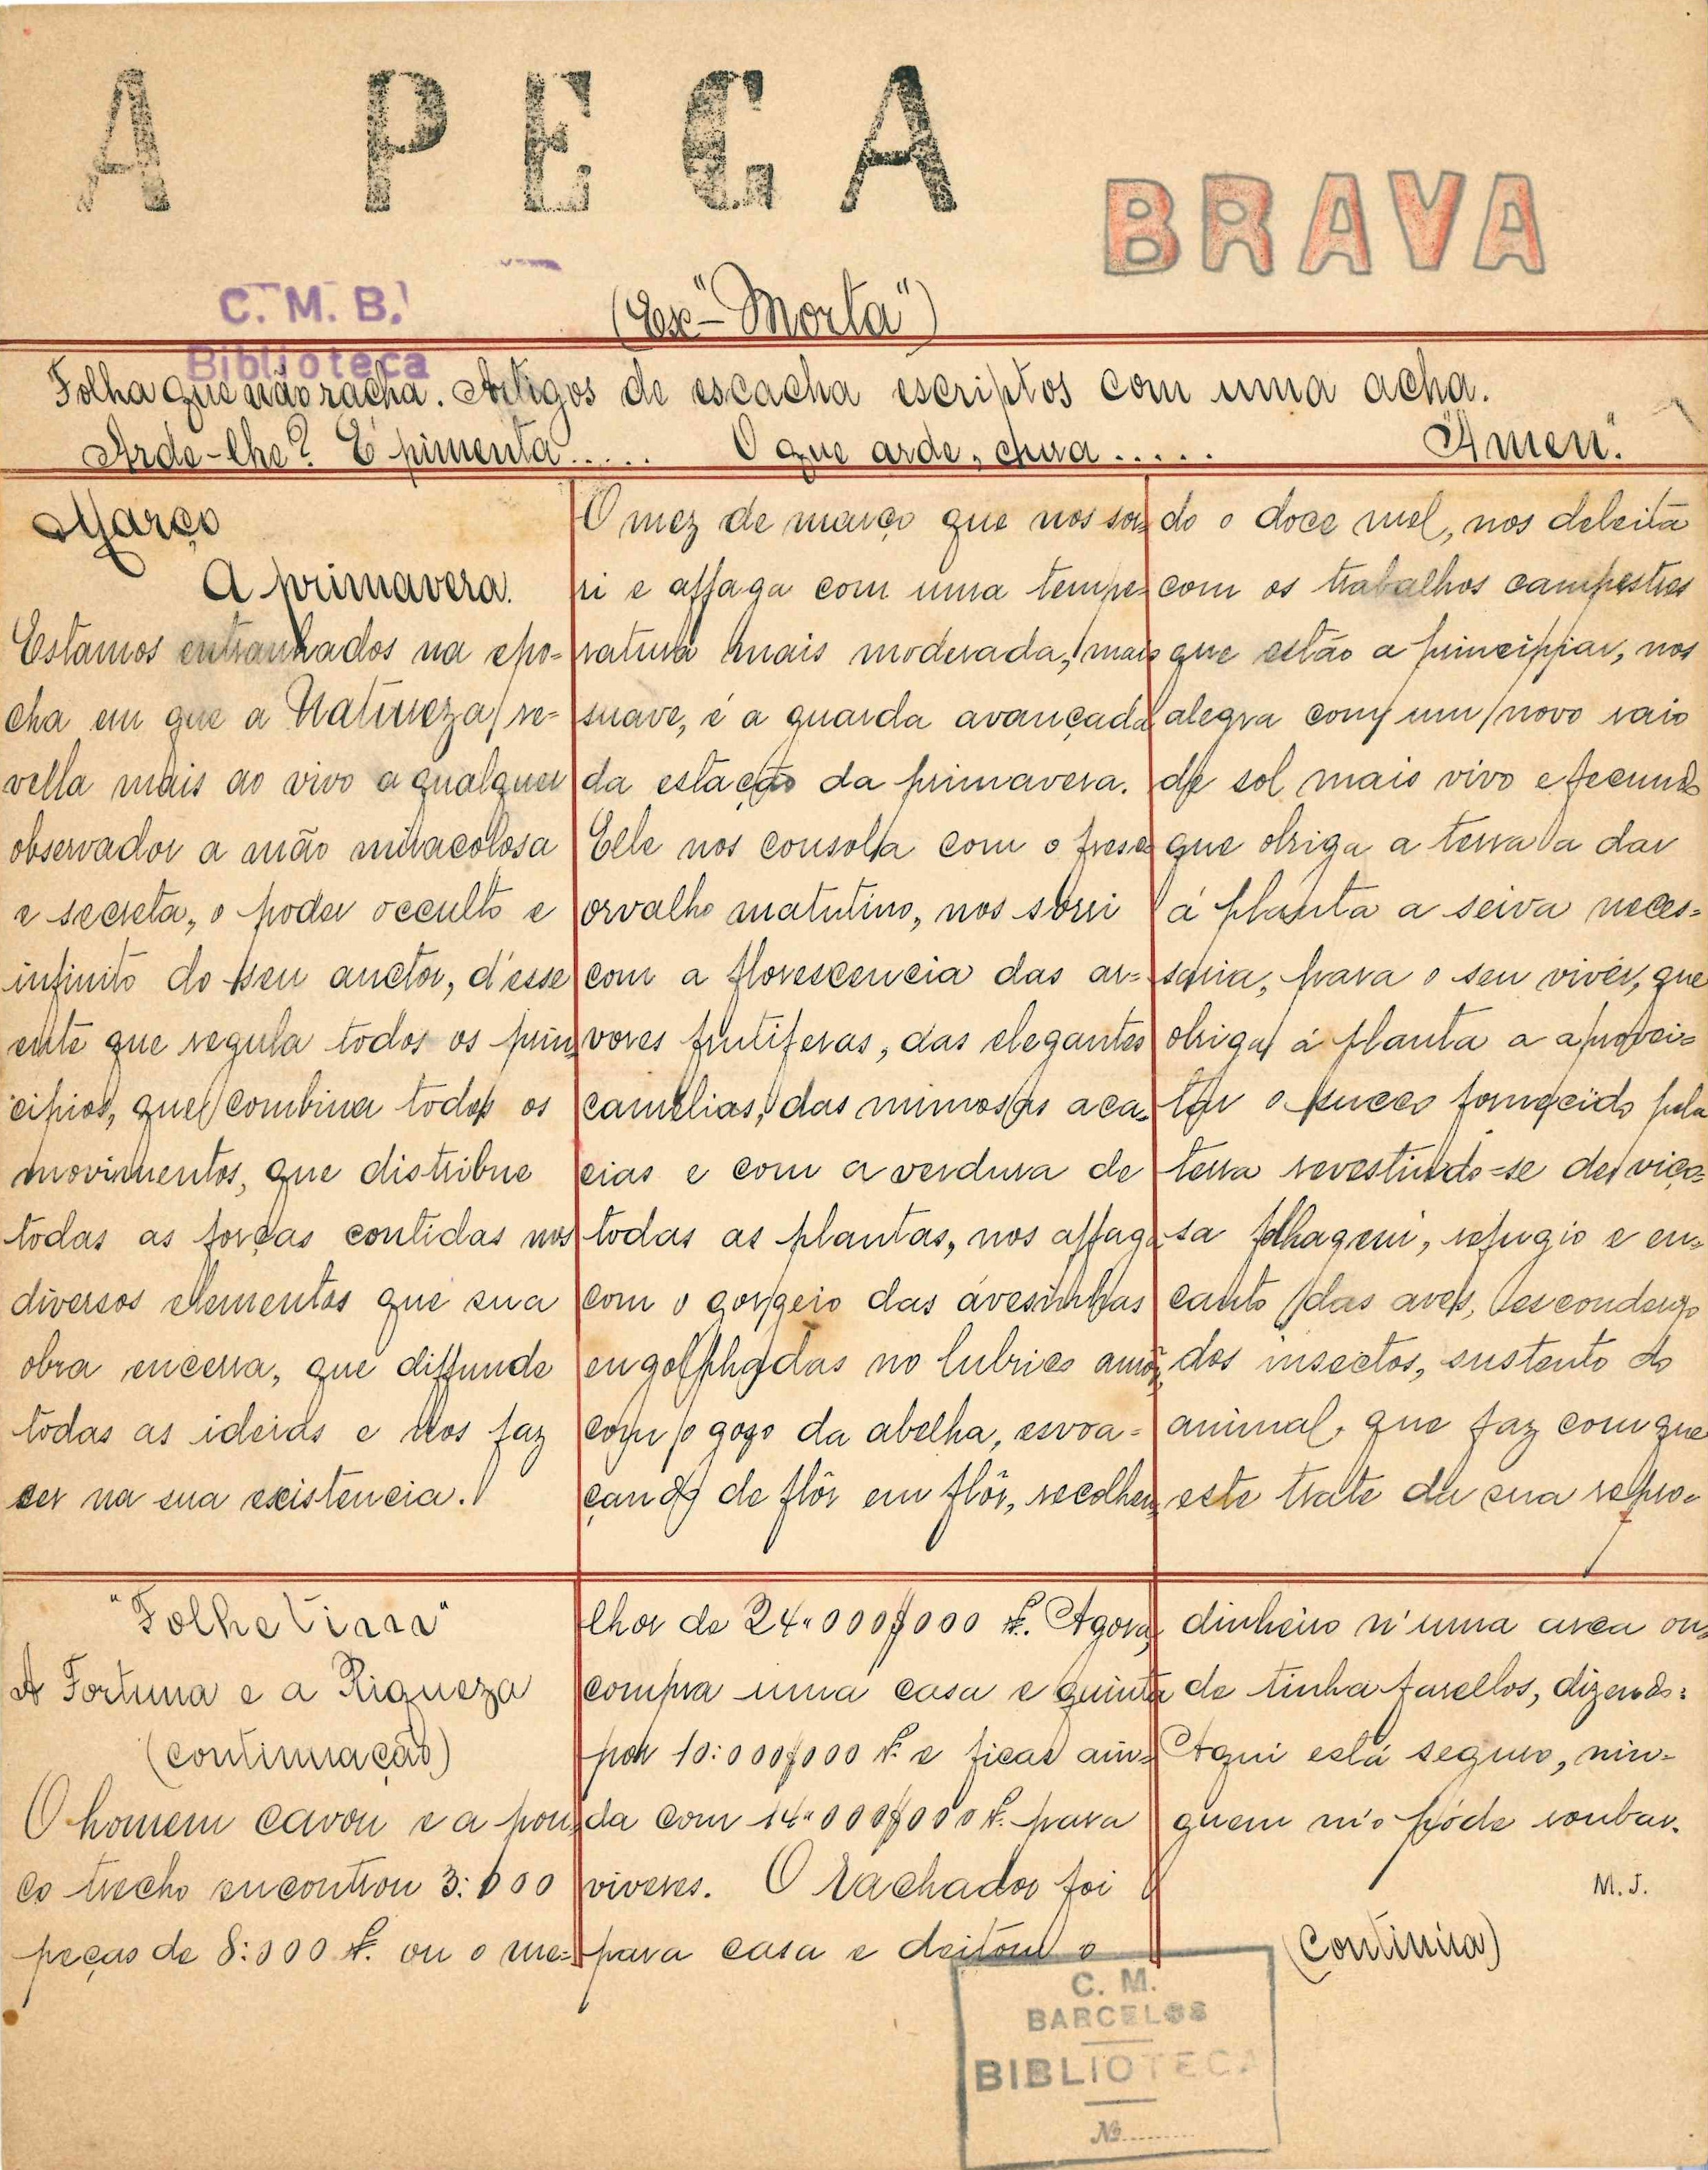 A PEGA
BRAVA
C. M. B.
Biblioteca
(Ex-"Morta")
Folha que não racha. Artigos de escacha escriptos com uma acha.
Arde-lhe? É pimenta..... O que arde, cura..... "Amen".
Março
A primavera.
Estamos entranhados na epo-
cha em que a Natureza re-
vella mais ao vivo a qualquer
observador a mão miracolosa
e secreta, o poder occulto e
infinito do seu auctor, d'esse
ente que regula todos os prin-
cipios, que combina todos os
movimentos, que distribue
todas as forças contidas nos
diversos elementos que sua
obra encerra, que diffunde
todas as ideias e nos faz
ser na sua existencia.
O mez de março que nos sor-
ri e affaga com uma tempe-
ratura mais moderada, mais
suave, é a guarda avançada
da estação da primavera.
Elle nos consolla com o fresco
orvalho matutino, nos sorri
com a florescencia das ar-
vores frutiferas, das elegantes
camelias, das mimosas aca-
cias e com a verdura de
todas as plantas, nos affaga
com o gorgeio das ávesinhas
engolphadas no lubrico amôr,
com o gozo da abelha, esvoa-
çando de flôr em flôr, recolhen-
do o doce mel, nos deleita
com os trabalhos campestres
que estão a princippiar, nos
alegra com um novo raio
de sol mais vivo e fecundo
que obriga a terra a dar
á planta a seiva neces-
saria, para o seu viver, que
obriga á planta a aprovei-
tar o succo fornecido pela
terra revestindo-se de viço-
sa folhagem, refugio e en-
canto das aves, escondenjo
dos insectos, sustento do
animal, que faz com que
este trate da sua repro-
"Folhetim"
A Fortuna e a Riqueza
(continuação)
O homem cavou e a pou-
co trecho encontrou 3:000
peças de 8:000 r. ou o me-
lhor de 24:000$000 r. Agora,
compra uma casa e quinta
por 10:000$000 r. e ficas ain-
da com 14:000$000 r. para
viveres. O rachador foi
para casa e deitou o
dinheiro n'uma arca on-
de tinha farellos, dizendo:
Aqui está seguro, nin-
guem m'o póde roubar.
M. J.
(Continúa)
C. M.
BARCELOS
BIBLIOTECA
Nº..........